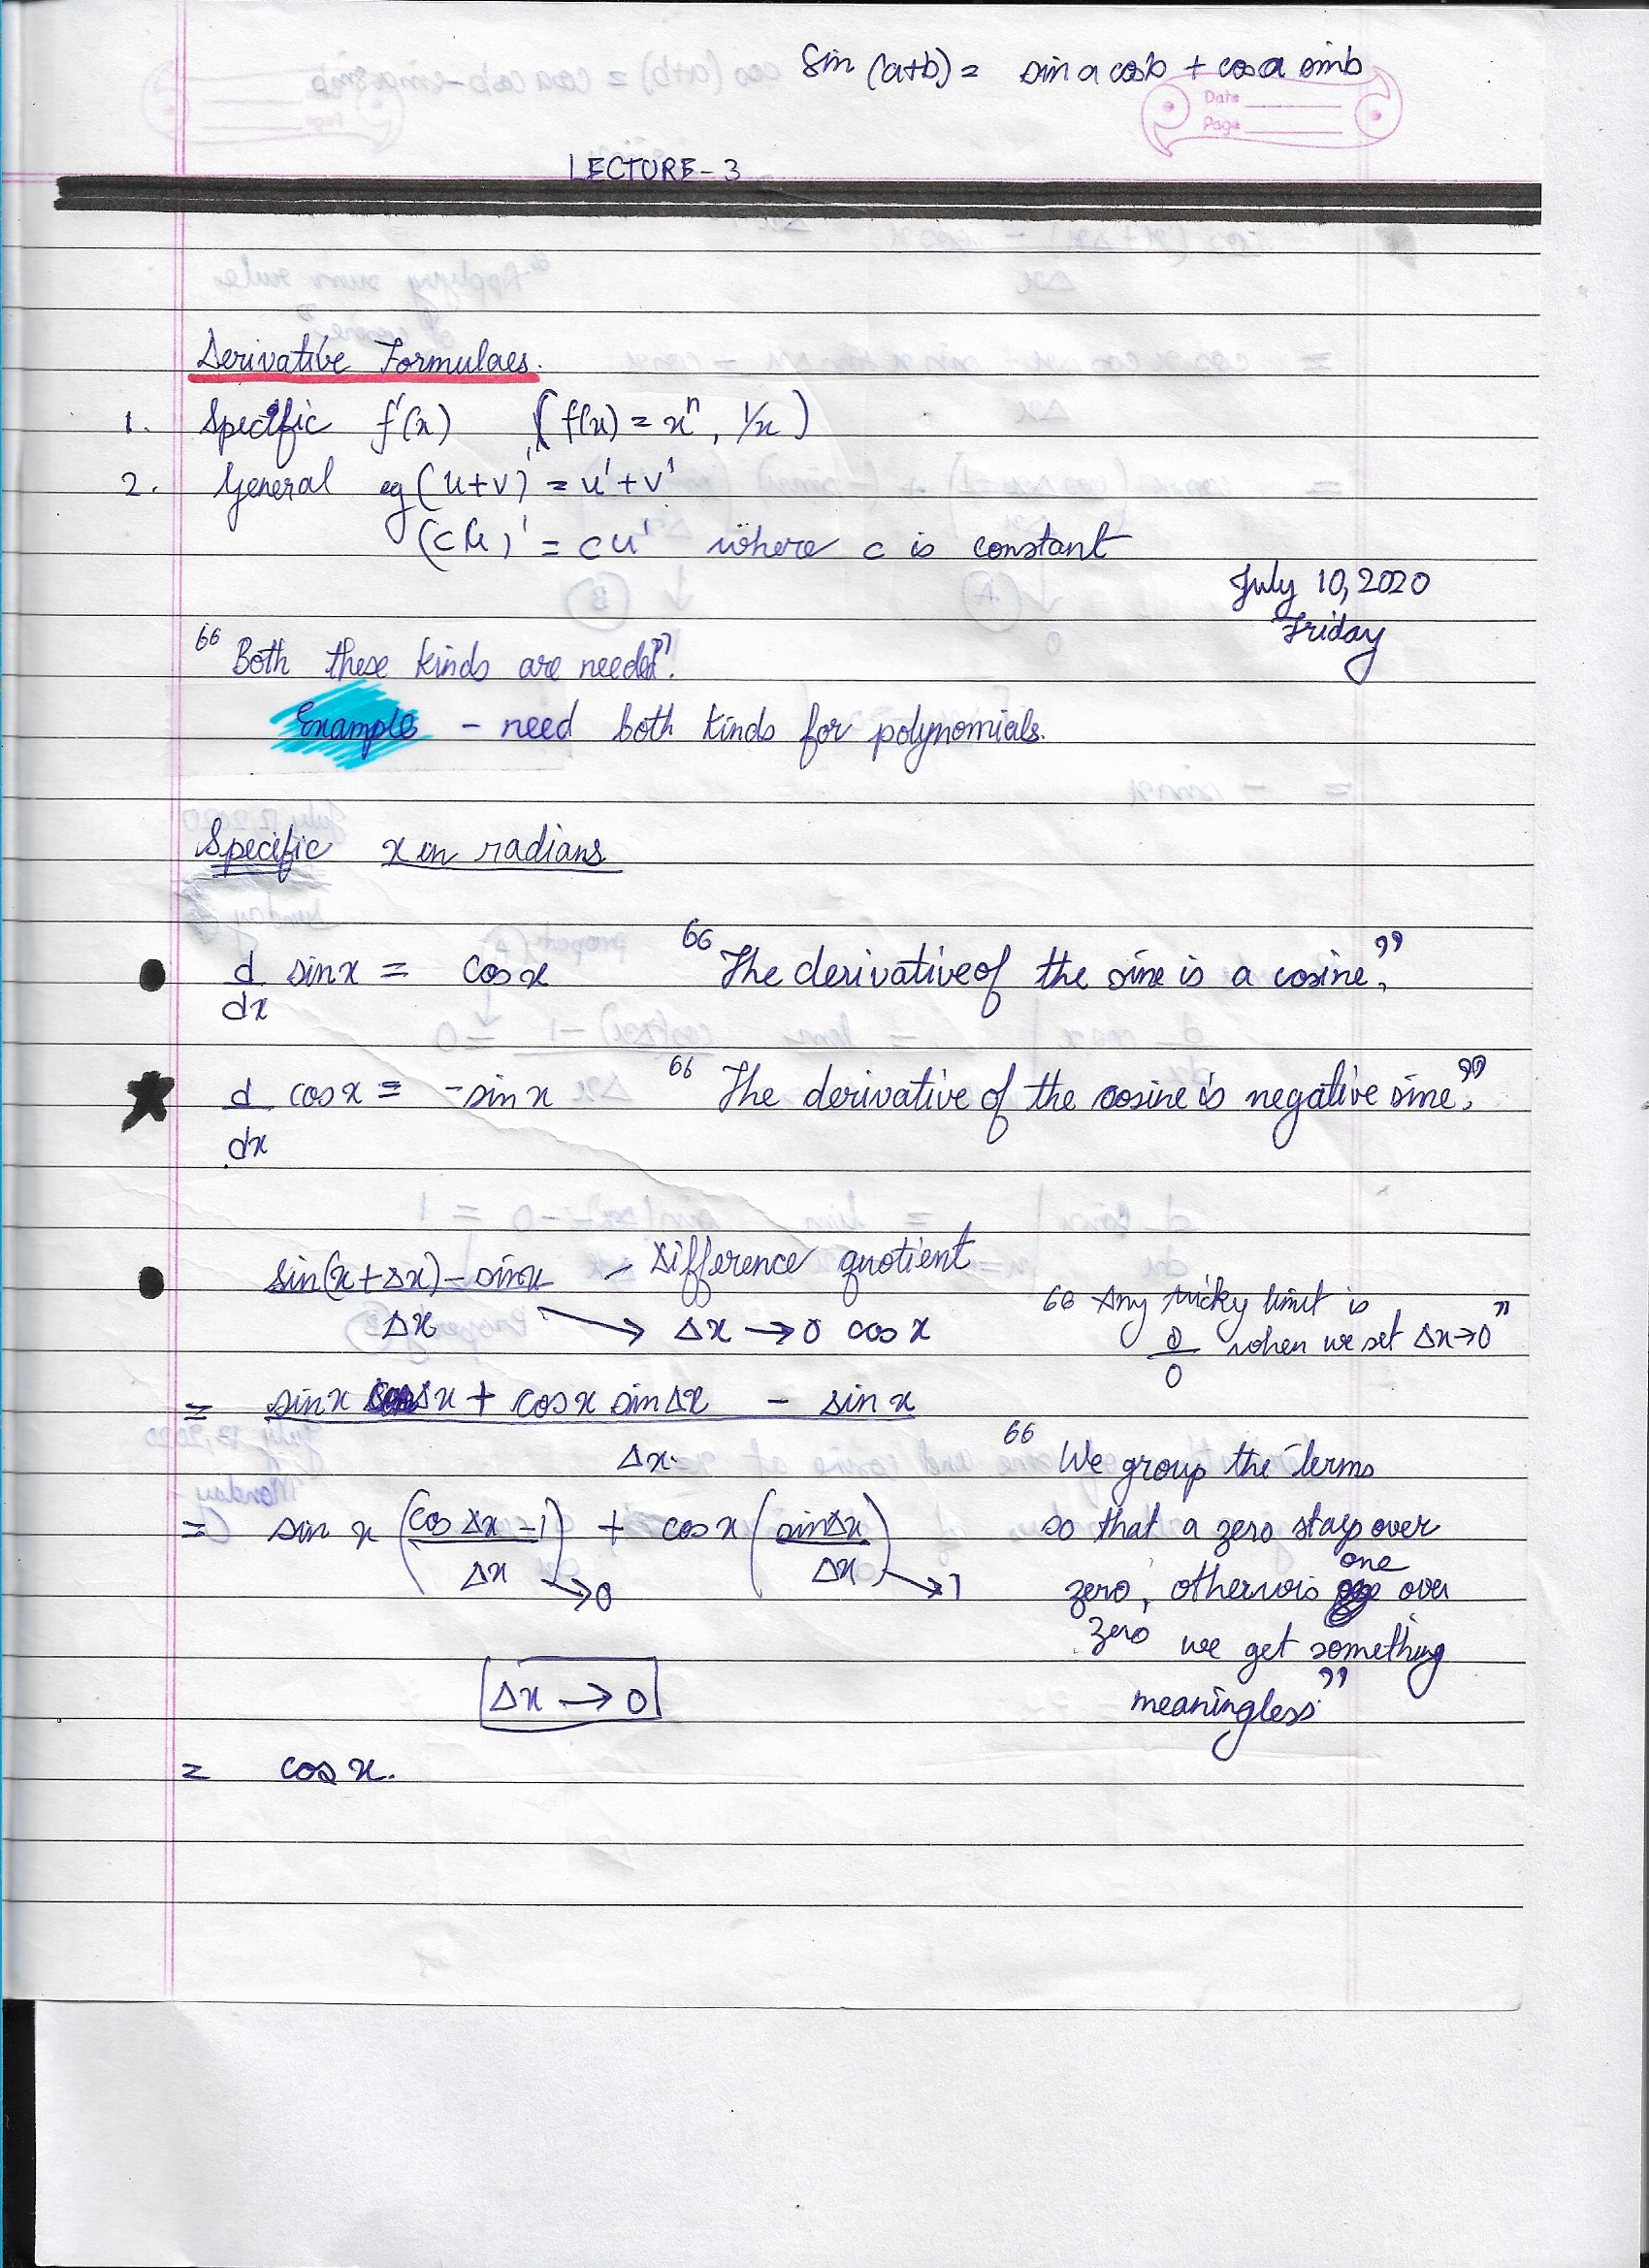 Sin (a+b) = sin a cosb + cosa sinb
Date
Page
LECTURE-3
Derivative Formulaes.
1. Specific f'(x) (f(x) = xⁿ, 1/x)
2. General eg (u+v)' = u'+v'
(cu)' = cu' where c is constant
July 10, 2020
Friday
“Both these kinds are needed”.
Example - need both kinds for polynomials.
Specific x in radians
• d/dx sinx = cosx “The derivative of the sine is a cosine,”
★ d/dx cosx = -sinx “The derivative of the cosine is negative sine,”
• sin(x+Δx)-sinx / Δx - Difference quotient
→ Δx → 0 cosx
“Any tricky limit is
0/0 when we set Δx→0”
= sinx cosΔx + cosx sinΔx - sinx / Δx
= sin x (cosΔx -1 / Δx) → 0 + cosx (sinΔx / Δx) → 1
“We group the terms
so that a zero stays over
zero, otherwis one over
zero we get something
meaningless”
Δx → 0
= cosx.